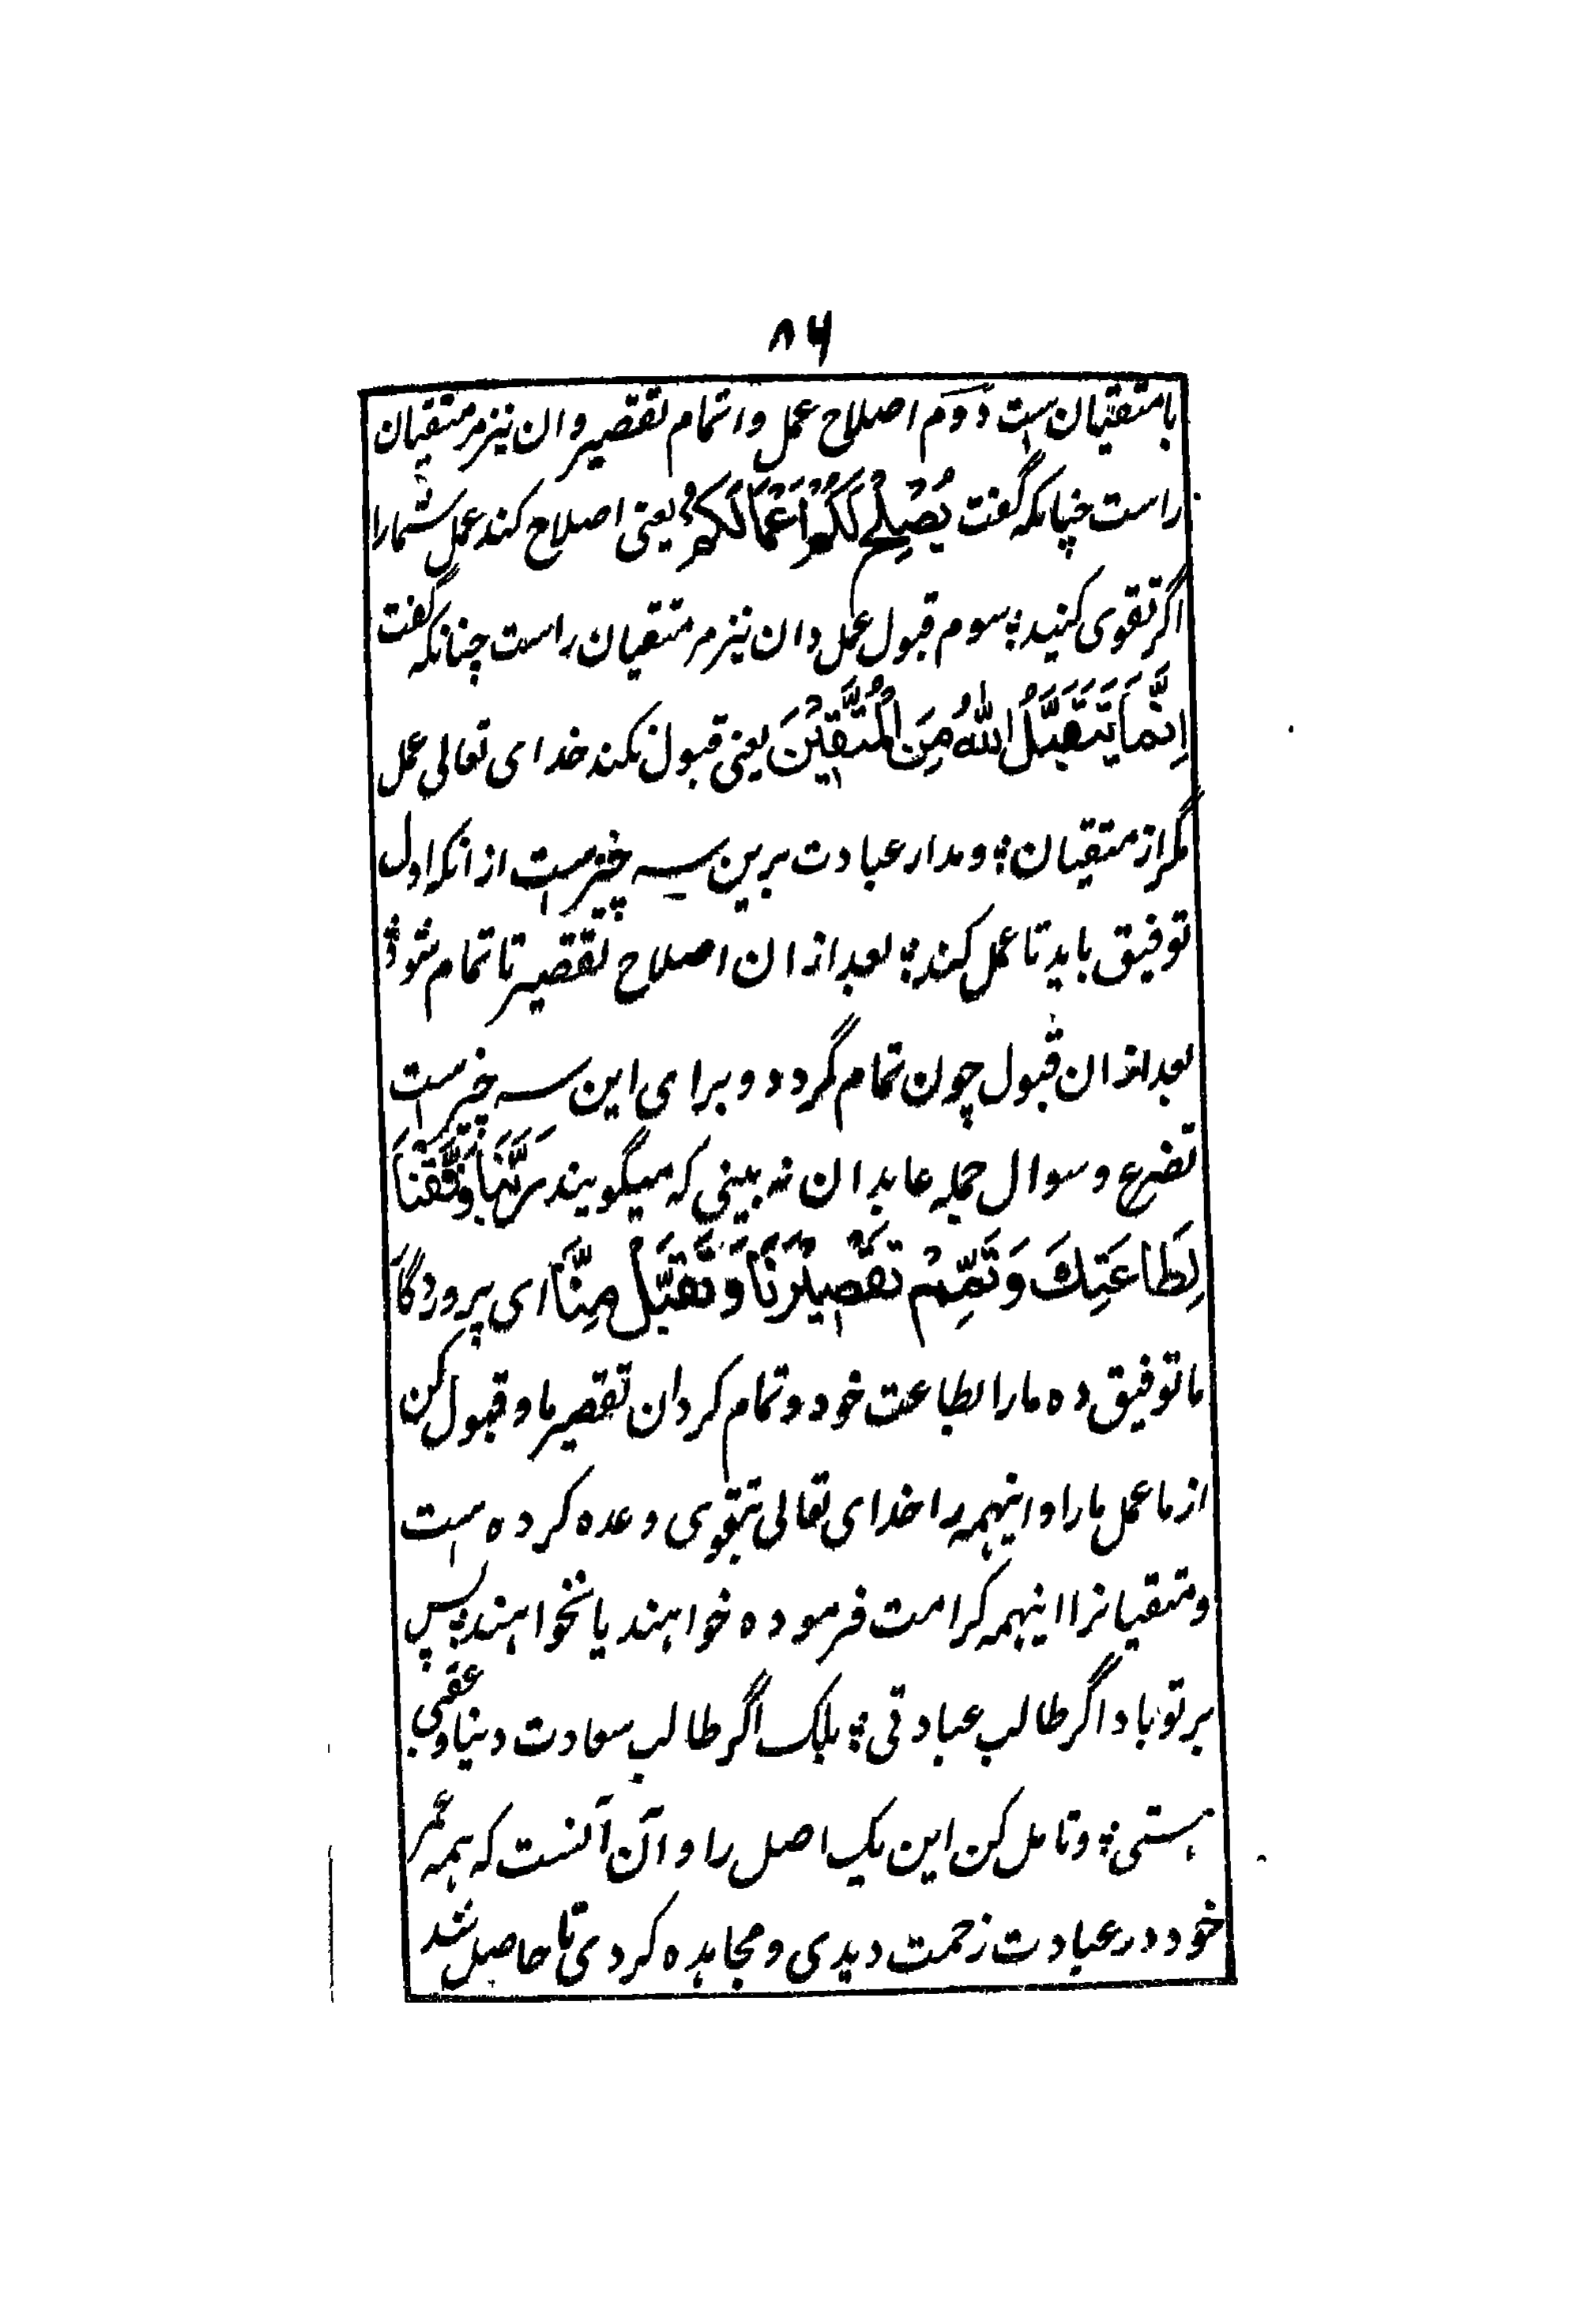 ۸۶
با متقیان ست دوم اصلاح عمل و اتمام تقصیر و ان نیز مر متقیان
راست چنانکه گفت یُصْلِحْ لَکُمْ اَعْمَالَکُمْ یعنی اصلاح کند عمل شمارا
اگر تقوی کنید؛ سوم قبول عمل و ان نیز مر متقیان راست چنانکه گفت
اِنَّمَا یَتَقَبَّلُ اللّٰهُ مِنَ الْمُتَّقِیْنَ یعنی قبول نکند خدای تعالی عمل
مگر از متقیان؛ و مدار عبادت برین سه چیزست از انکه اول
توفیق باید تا عمل کند؛ بعد از ان اصلاح تقصیر تا تمام شود؛
بعد از ان قبول چون تمام گردد و برای این سه چیزست
تضرع و سوال جمله عابدان نه بینی که میگویند رَبَّنَا وَفِّقْنَا
لِطَاعَتِكَ وَتَمِّمْ تَقْصِیْرَنَا وَتَقَبَّلْ مِنَّا ای پروردگا
ما توفیق ده مارا بطاعت خود و تمام کردان تقصیر ما و قبول کن
از ما عمل مارا و اینهمه را خدای تعالی بتقوی وعده کرده است
و متقیانرا اینهمه کرامت فرموده خواهند یا نخواهند؛ پس
بر تو باد اگر طالب عبادتی؛ بلک اگر طالب سعادت دنیا و عقبی
هستی؛ و تامل کن این یک اصل را و آن آنست که همه عمر
خود در عبادت زحمت دیدی و مجاهده کردی تا حاصل شد